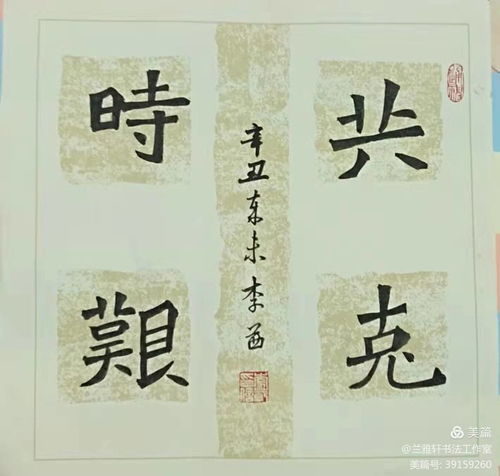 共克
時艱
辛丑年末李茜
美篇
@兰雅轩书法工作室
美篇号: 39159260